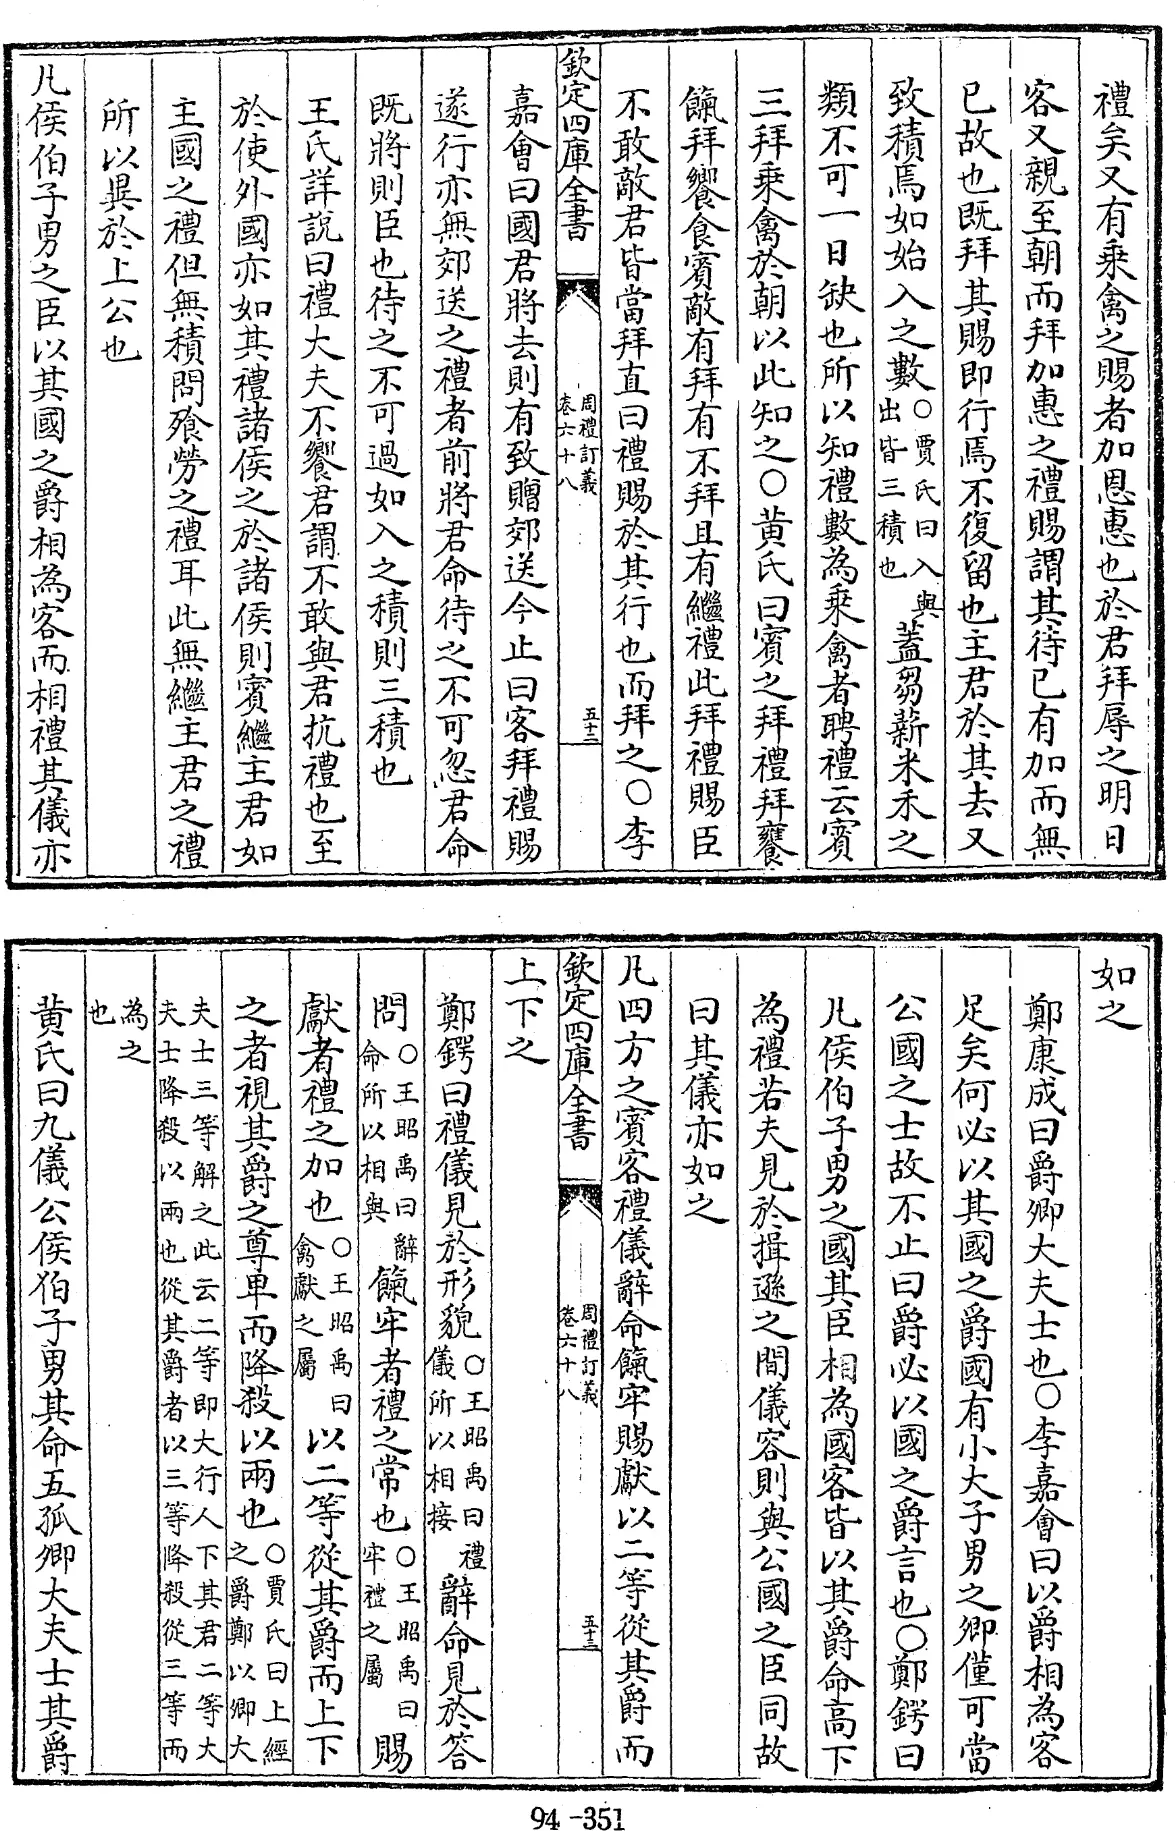 禮矣又有乘禽之賜者加恩惠也於君拜辱之明日
客又親至朝而拜加惠之禮賜謂其待已有加而無
已故也既拜其賜即行焉不復留也主君於其去又
致積焉如始入之數○賈氏曰入與出皆三積也蓋芻薪米禾之
類不可一日缺也所以知禮數為乘禽者聘禮云賓
三拜乘禽於朝以此知之○黄氏曰賓之拜禮拜饔
餼拜饗食賓敵有拜有不拜且有繼禮此拜禮賜臣
不敢敵君皆當拜直曰禮賜於其行也而拜之○李
欽定四庫全書
周禮訂義
卷六十八
五十二
嘉會曰國君將去則有致贈郊送今止曰客拜禮賜
遂行亦無郊送之禮者前將君命待之不可忽君命
既將則臣也待之不可過如入之積則三積也
王氏詳說曰禮大夫不饗君謂不敢與君抗禮也至
於使外國亦如其禮諸侯之於諸侯則賓繼主君如
主國之禮但無積問飱勞之禮耳此無繼主君之禮
所以異於上公也
凡侯伯子男之臣以其國之爵相為客而相禮其儀亦
如之
鄭康成曰爵卿大夫士也○李嘉會曰以爵相為客
足矣何必以其國之爵國有小大子男之卿僅可當
公國之士故不止曰爵必以國之爵言也○鄭鍔曰
凡侯伯子男之國其臣相為國客皆以其爵命高下
為禮若夫見於揖遜之間儀容則與公國之臣同故
曰其儀亦如之
凡四方之賓客禮儀辭命餼牢賜獻以二等從其爵而
上下之
欽定四庫全書
周禮訂義
卷六十八
五十三
鄭鍔曰禮儀見於形貌○王昭禹曰禮儀所以相接辭命見於答
問○王昭禹曰辭命所以相與餼牢者禮之常也○王昭禹曰牢禮之屬賜
獻者禮之加也○王昭禹曰禽獻之屬以二等從其爵而上下
之者視其爵之尊卑而降殺以兩也○賈氏曰上經之爵鄭以卿大
夫士三等解之此云二等即大行人下其君二等大
夫士降殺以兩也從其爵者以三等降殺從三等而
為之也
黄氏曰九儀公侯伯子男其命五孤卿大夫士其爵
94-351